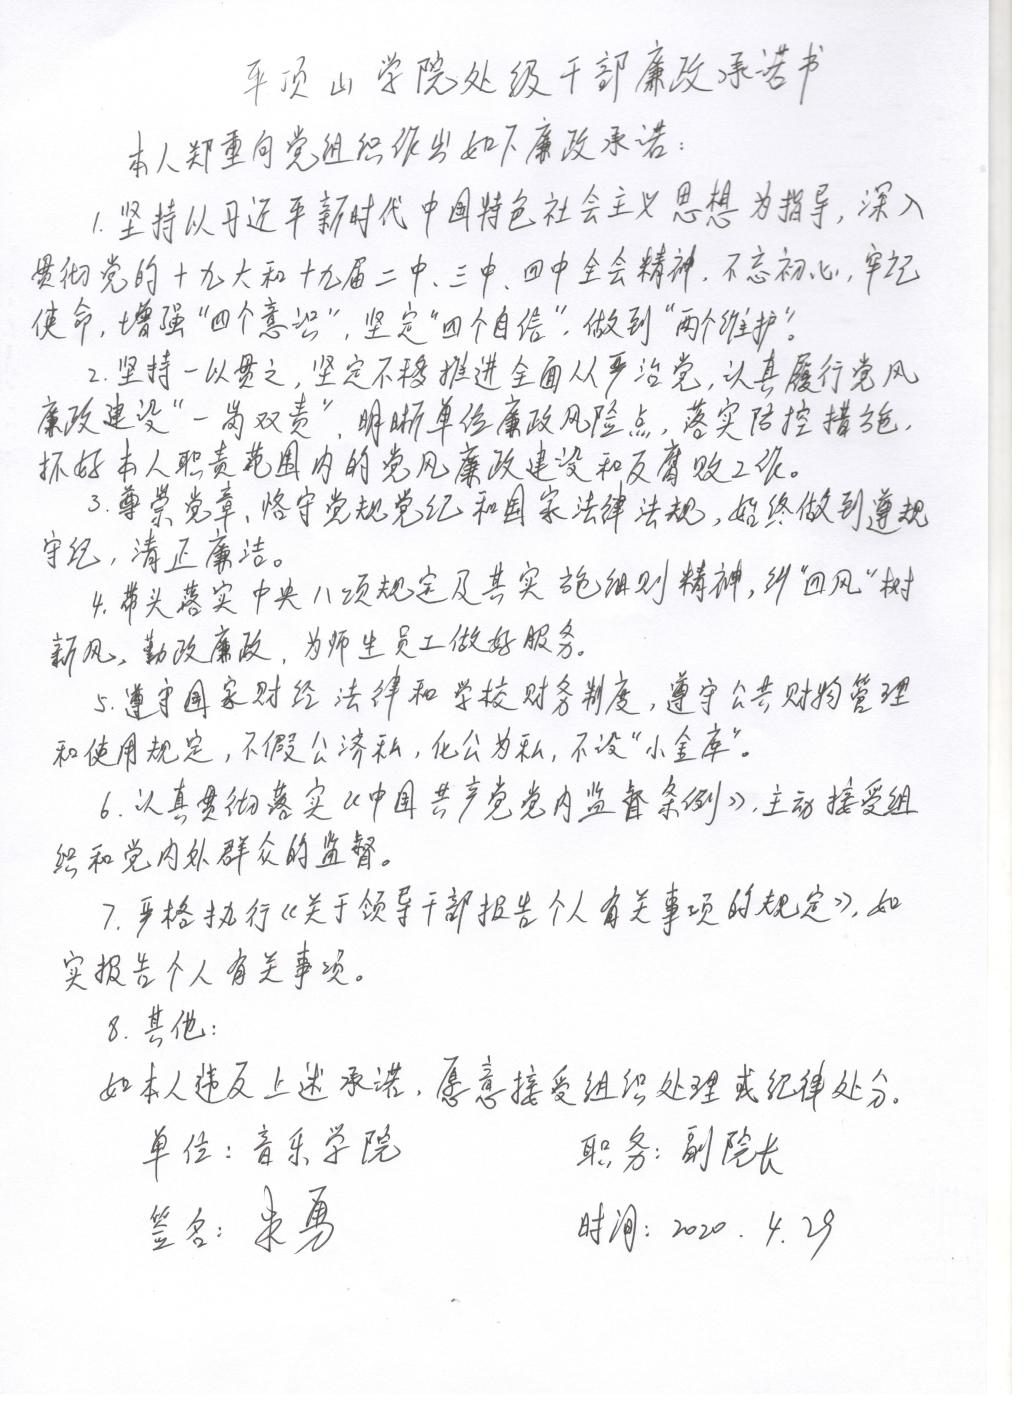 平顶山学院处级干部廉政承诺书
本人郑重向党组织作出如下廉政承诺：
1.坚持以习近平新时代中国特色社会主义思想为指导，深入
贯彻党的十九大和十九届二中、三中、四中全会精神，不忘初心，牢记
使命，增强“四个意识”，坚定“四个自信”，做到“两个维护”。
2.坚持一以贯之，坚定不移推进全面从严治党，认真履行党风
廉政建设“一岗双责”，明晰单位廉政风险点，落实防控措施，
抓好本人职责范围内的党风廉政建设和反腐败工作。
3.尊崇党章、恪守党规党纪和国家法律法规，始终做到遵规
守纪，清正廉洁。
4.带头落实中央八项规定及其实施细则精神，纠“四风”树
新风，勤政廉政，为师生员工做好服务。
5.遵守国家财经法律和学校财务制度，遵守公共财物管理
和使用规定，不假公济私，化公为私，不设“小金库”。
6.认真贯彻落实《中国共产党党内监督条例》，主动接受组
织和党内外群众的监督。
7.严格执行《关于领导干部报告个人有关事项的规定》，如
实报告个人有关事项。
8.其他：
如本人违反上述承诺，愿意接受组织处理或纪律处分。
单位：音乐学院 职务：副院长
签名：朱勇 时间：2020.4.29